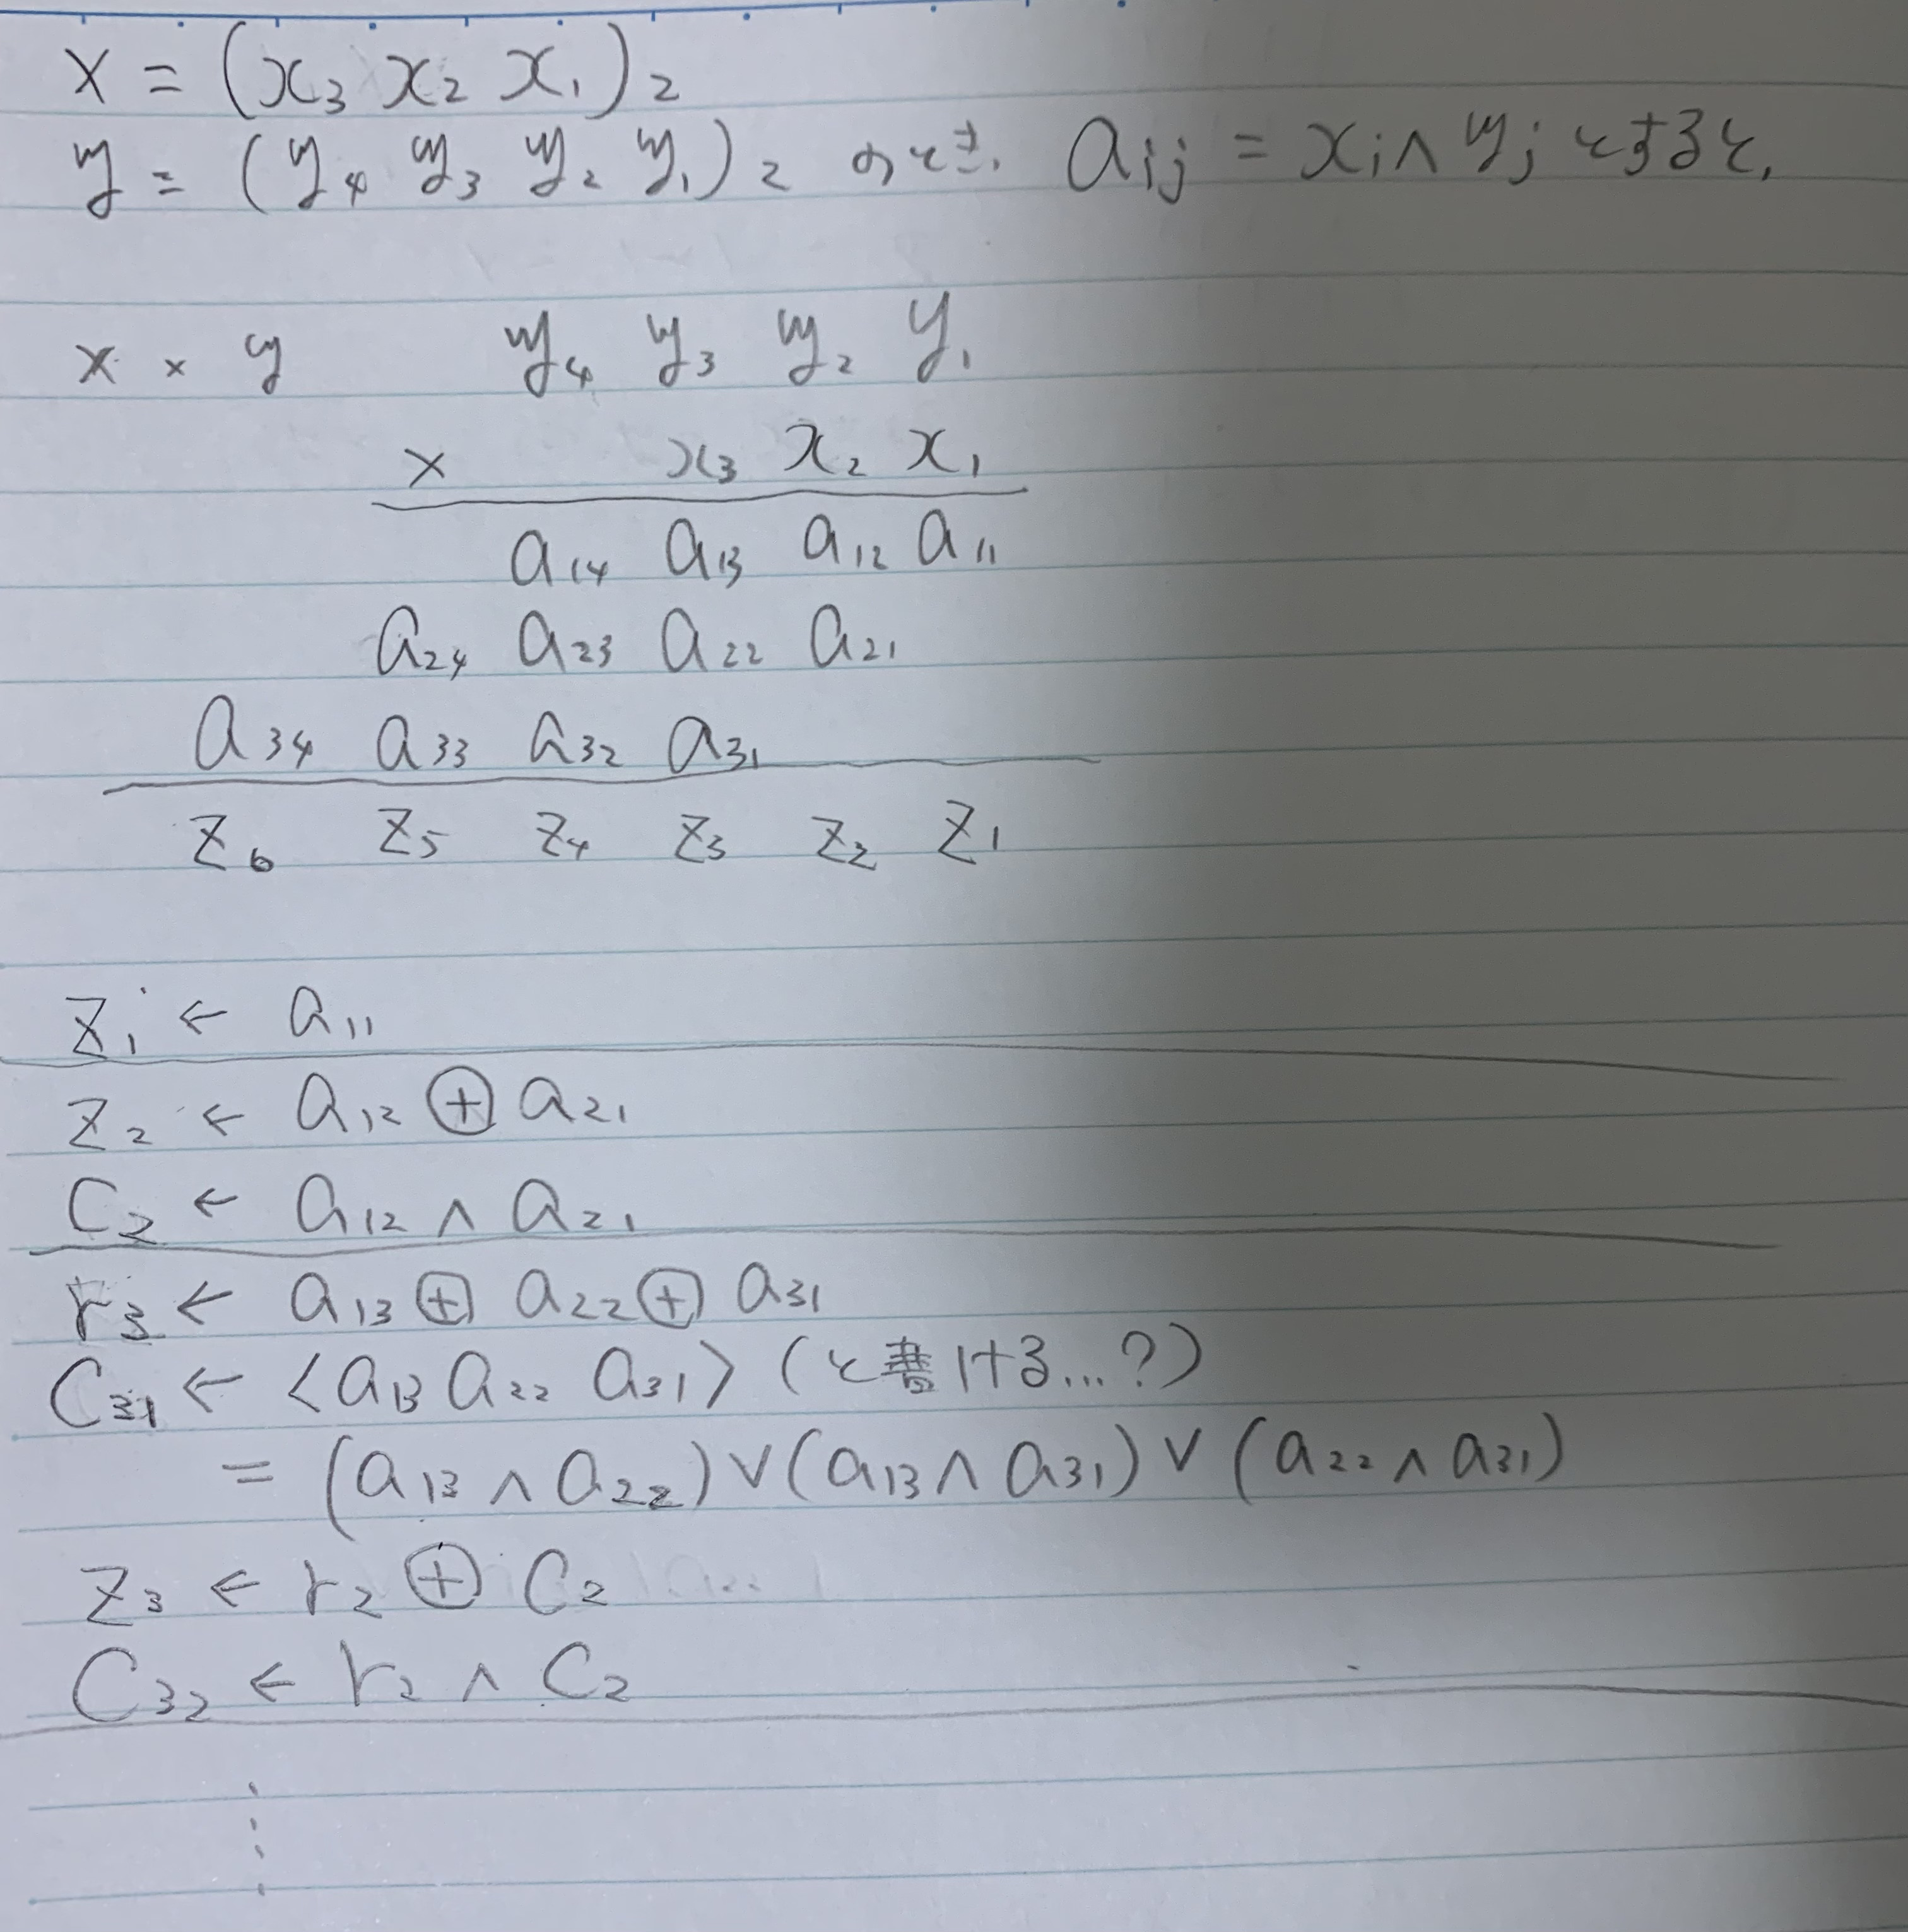 x = (x₃ x₂ x₁)₂
y = (y₄ y₃ y₂ y₁)₂ のとき、 aᵢⱼ = xᵢ ∧ yⱼ とすると、
x × y y₄ y₃ y₂ y₁
× x₃ x₂ x₁
a₁₄ a₁₃ a₁₂ a₁₁
a₂₄ a₂₃ a₂₂ a₂₁
a₃₄ a₃₃ a₃₂ a₃₁
z₆ z₅ z₄ z₃ z₂ z₁
z₁ ← a₁₁
z₂ ← a₁₂ ⊕ a₂₁
c₂ ← a₁₂ ∧ a₂₁
r₃ ← a₁₃ ⊕ a₂₂ ⊕ a₃₁
c₃₁ ← ⟨a₁₃ a₂₂ a₃₁⟩ (と書ける...?)
= (a₁₃ ∧ a₂₂) ∨ (a₁₃ ∧ a₃₁) ∨ (a₂₂ ∧ a₃₁)
z₃ ← r₂ ⊕ c₂
c₃₂ ← r₂ ∧ c₂
⋮